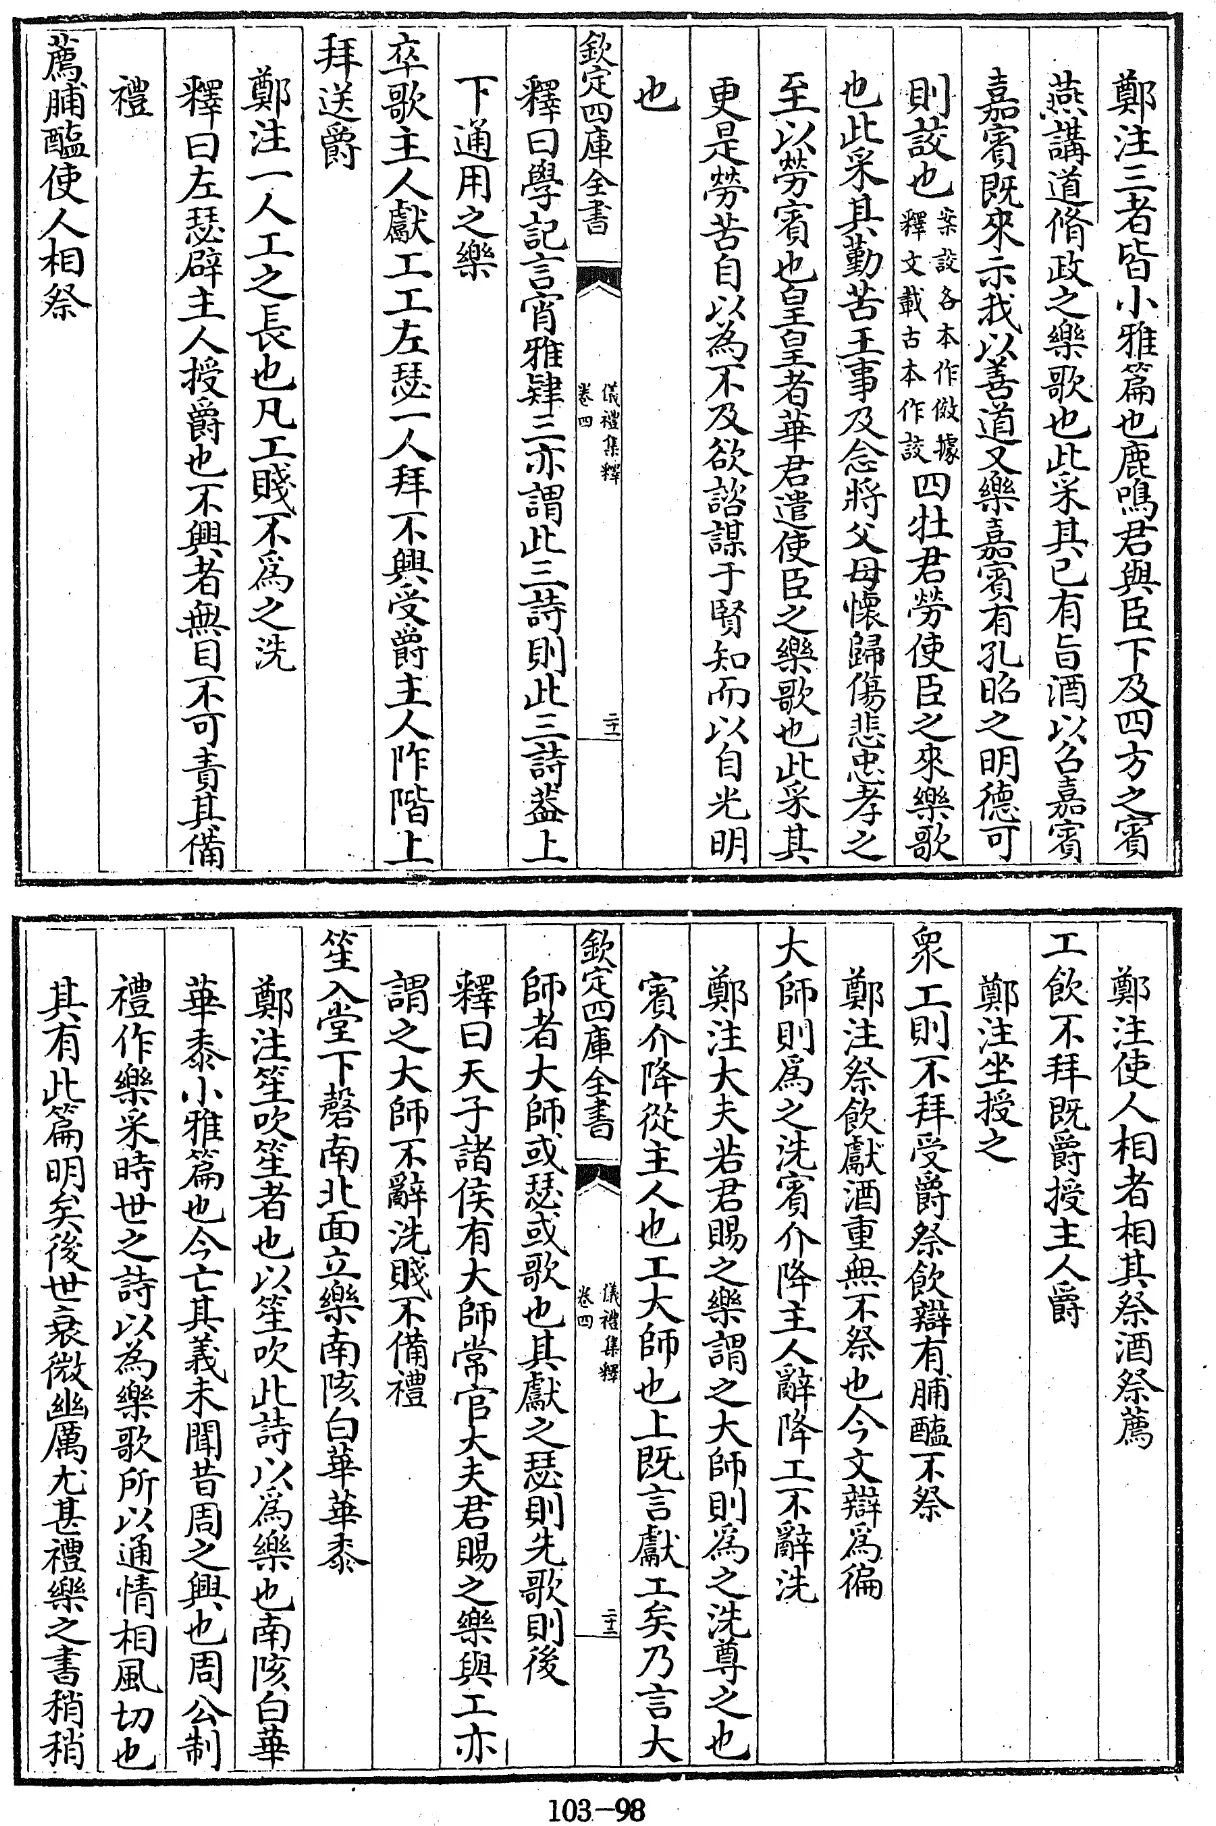 鄭注三者皆小雅篇也鹿鳴君與臣下及四方之賓
燕講道脩政之樂歌也此采其已有旨酒以召嘉賓
嘉賓既來示我以善道又樂嘉賓有孔昭之明德可
則詨也案詨各本作傚據釋文載古本作詨四牡君勞使臣之來樂歌
也此采其勤苦王事及念將父母懷歸傷悲忠孝之
至以勞賓也皇皇者華君遣使臣之樂歌也此采其
更是勞苦自以為不及欲諮謀于賢知而以自光明
也
欽定四庫全書
儀禮集釋
卷四
二十一
釋曰學記言宵雅肄三亦謂此三詩則此三詩葢上
下通用之樂
卒歌主人獻工工左瑟一人拜不興受爵主人阼階上
拜送爵
鄭注一人工之長也凡工賤不爲之洗
釋曰左瑟辟主人授爵也不興者無目不可責其備
禮
薦脯醢使人相祭
鄭注使人相者相其祭酒祭薦
工飲不拜既爵授主人爵
鄭注坐授之
衆工則不拜受爵祭飲辯有脯醢不祭
鄭注祭飲獻酒重無不祭也今文辯爲徧
大師則爲之洗賓介降主人辭降工不辭洗
鄭注大夫若君賜之樂謂之大師則爲之洗尊之也
賓介降從主人也工大師也上既言獻工矣乃言大
欽定四庫全書
儀禮集釋
卷四
二十二
師者大師或瑟或歌也其獻之瑟則先歌則後
釋曰天子諸侯有大師常官大夫君賜之樂與工亦
謂之大師不辭洗賤不備禮
笙入堂下磬南北面立樂南陔白華華黍
鄭注笙吹笙者也以笙吹此詩以爲樂也南陔白華
華黍小雅篇也今亡其義未聞昔周之興也周公制
禮作樂采時世之詩以為樂歌所以通情相風切也
其有此篇明矣後世衰微幽厲尤甚禮樂之書稍稍
103-98